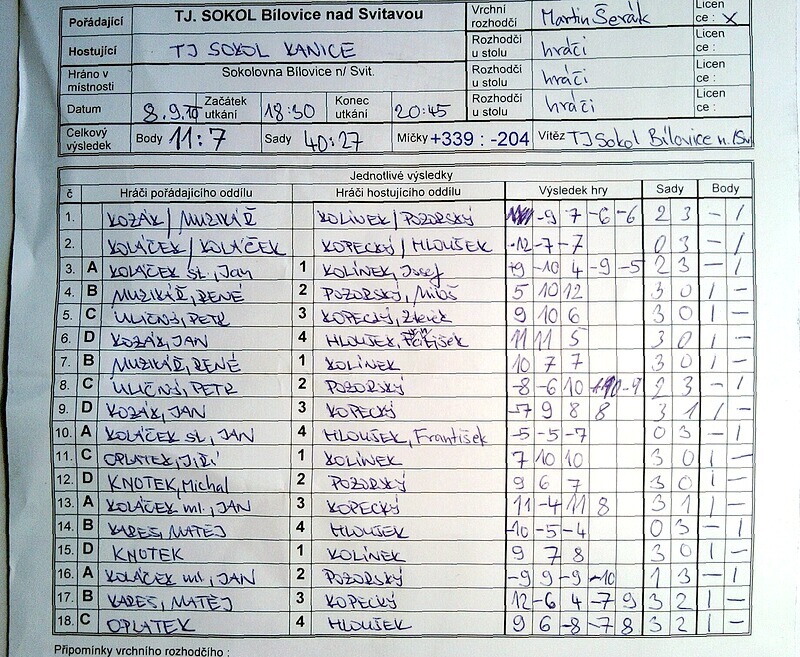 Pořádající TJ. SOKOL Bílovice nad Svitavou Vrchní rozhodčí Martin Šerák Licence : X
Hostující TJ SOKOL KANICE Rozhodčí u stolu hráči Licence :
Hráno v místnosti Sokolovna Bílovice n/ Svit. Rozhodčí u stolu hráči Licence :
Datum 8.9. Začátek utkání 18:30 Konec utkání 20:45 Rozhodčí u stolu hráči Licence :
Celkový výsledek Body 11:7 Sady 40:27 Míčky +339 : -204 Vítěz TJ Sokol Bílovice n.
Jednotlivé výsledky
č Hráči pořádajícího oddílu Hráči hostujícího oddílu Výsledek hry Sady Body
1. KOZÁK / MUZIKÁŘ KOLÍNEK / POZORSKÝ -9 7 -6 -6 2 3 - 1
2. KOLÁČEK / KOLÁČEK KOPECKÝ / HLOUŠEK -12 -7 -7 0 3 - 1
3. A KOLÁČEK st., Jan 1 KOLÍNEK, Josef -10 4 -9 -5 2 3 - 1
4. B MUZIKÁŘ, RENÉ 2 POZORSKÝ, Miloš 5 10 12 3 0 1 -
5. C ÚLIČNÝ, PETR 3 KOPECKÝ, Zdeněk 9 10 6 3 0 1 -
6. D KOZÁK, JAN 4 HLOUŠEK, 11 11 5 3 0 1 -
7. B MUZIKÁŘ, RENÉ 1 KOLÍNEK 10 7 7 3 0 1 -
8. C ÚLIČNÝ, PETR 2 POZORSKÝ -8 -6 10 -9 2 3 - 1
9. D KOZÁK, JAN 3 KOPECKÝ -7 9 8 8 3 1 1 -
10. A KOLÁČEK st., JAN 4 HLOUŠEK, František -5 -5 -7 0 3 - 1
11. C OPLATEK, JIŘÍ 1 KOLÍNEK 7 10 10 3 0 1 -
12. D KNOTEK, Michal 2 POZORSKÝ 9 6 7 3 0 1 -
13. A KOLÁČEK ml., JAN 3 KOPECKÝ 11 -4 11 8 3 1 1 -
14. B KAREŠ, MATĚJ 4 HLOUŠEK -10 -5 -4 0 3 - 1
15. D KNOTEK 1 KOLÍNEK 9 7 8 3 0 1 -
16. A KOLÁČEK ml., JAN 2 POZORSKÝ -9 9 -9 -10 1 3 - 1
17. B KAREŠ, MATĚJ 3 KOPECKÝ 12 -6 4 -7 9 3 2 1 -
18. C OPLATEK 4 HLOUŠEK 9 6 -8 -7 8 3 2 1 -
Připomínky vrchního rozhodčího :